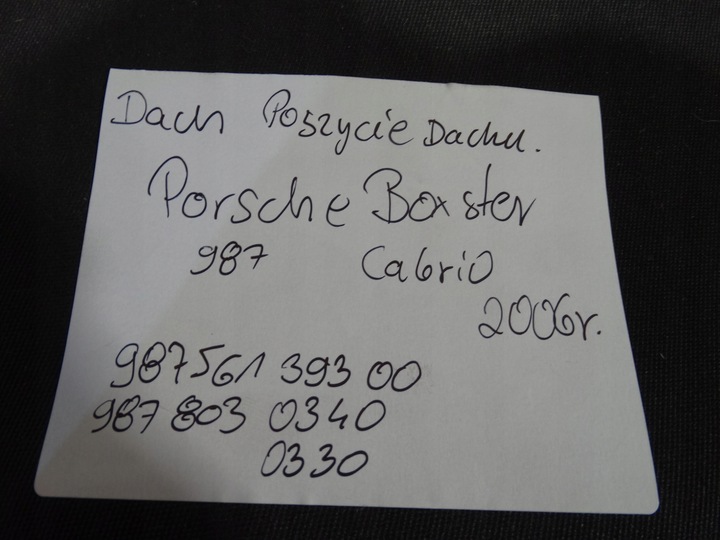 Dach Poszycie Dachu.
Porsche Boxster
987 Cabrio
2006r.
987561 393 00
987 803 0340
0330